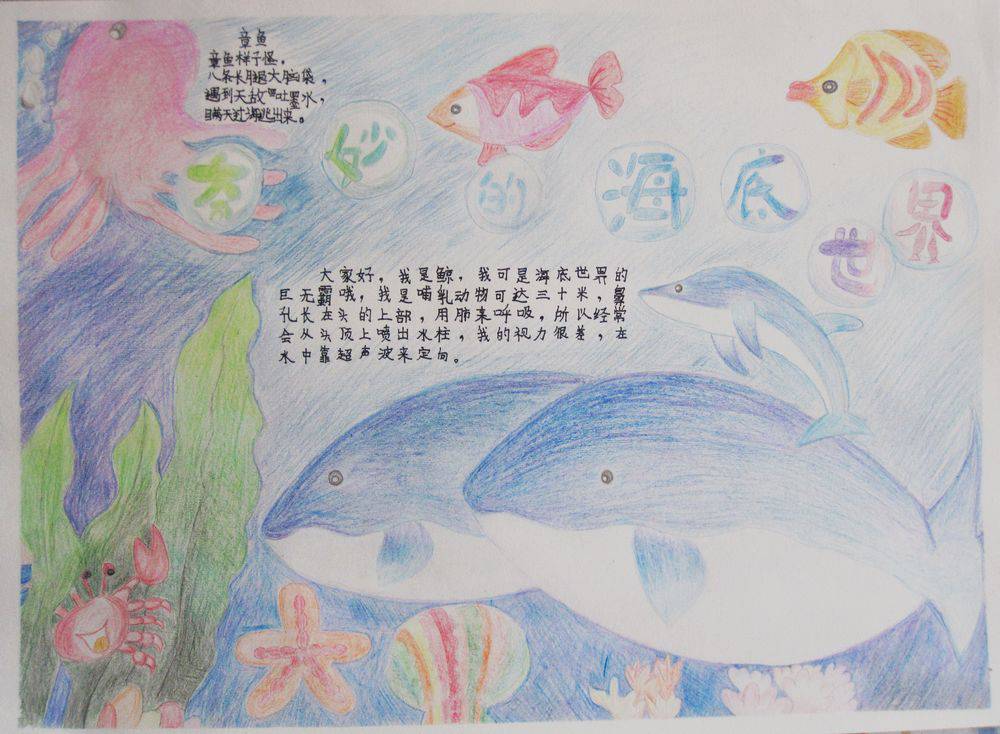 章鱼
章鱼样子怪，
八条长腿大脑袋，
遇到天敌吐墨水，
瞒天过海逃出来。
奇妙的海底世界
大家好，我是鲸，我可是海底世界的
巨无霸哦，我是哺乳动物可达三十米，鼻
孔长在头的上部，用肺来呼吸，所以经常
会从头顶上喷出水柱，我的视力很差，在
水中靠超声波来定向。